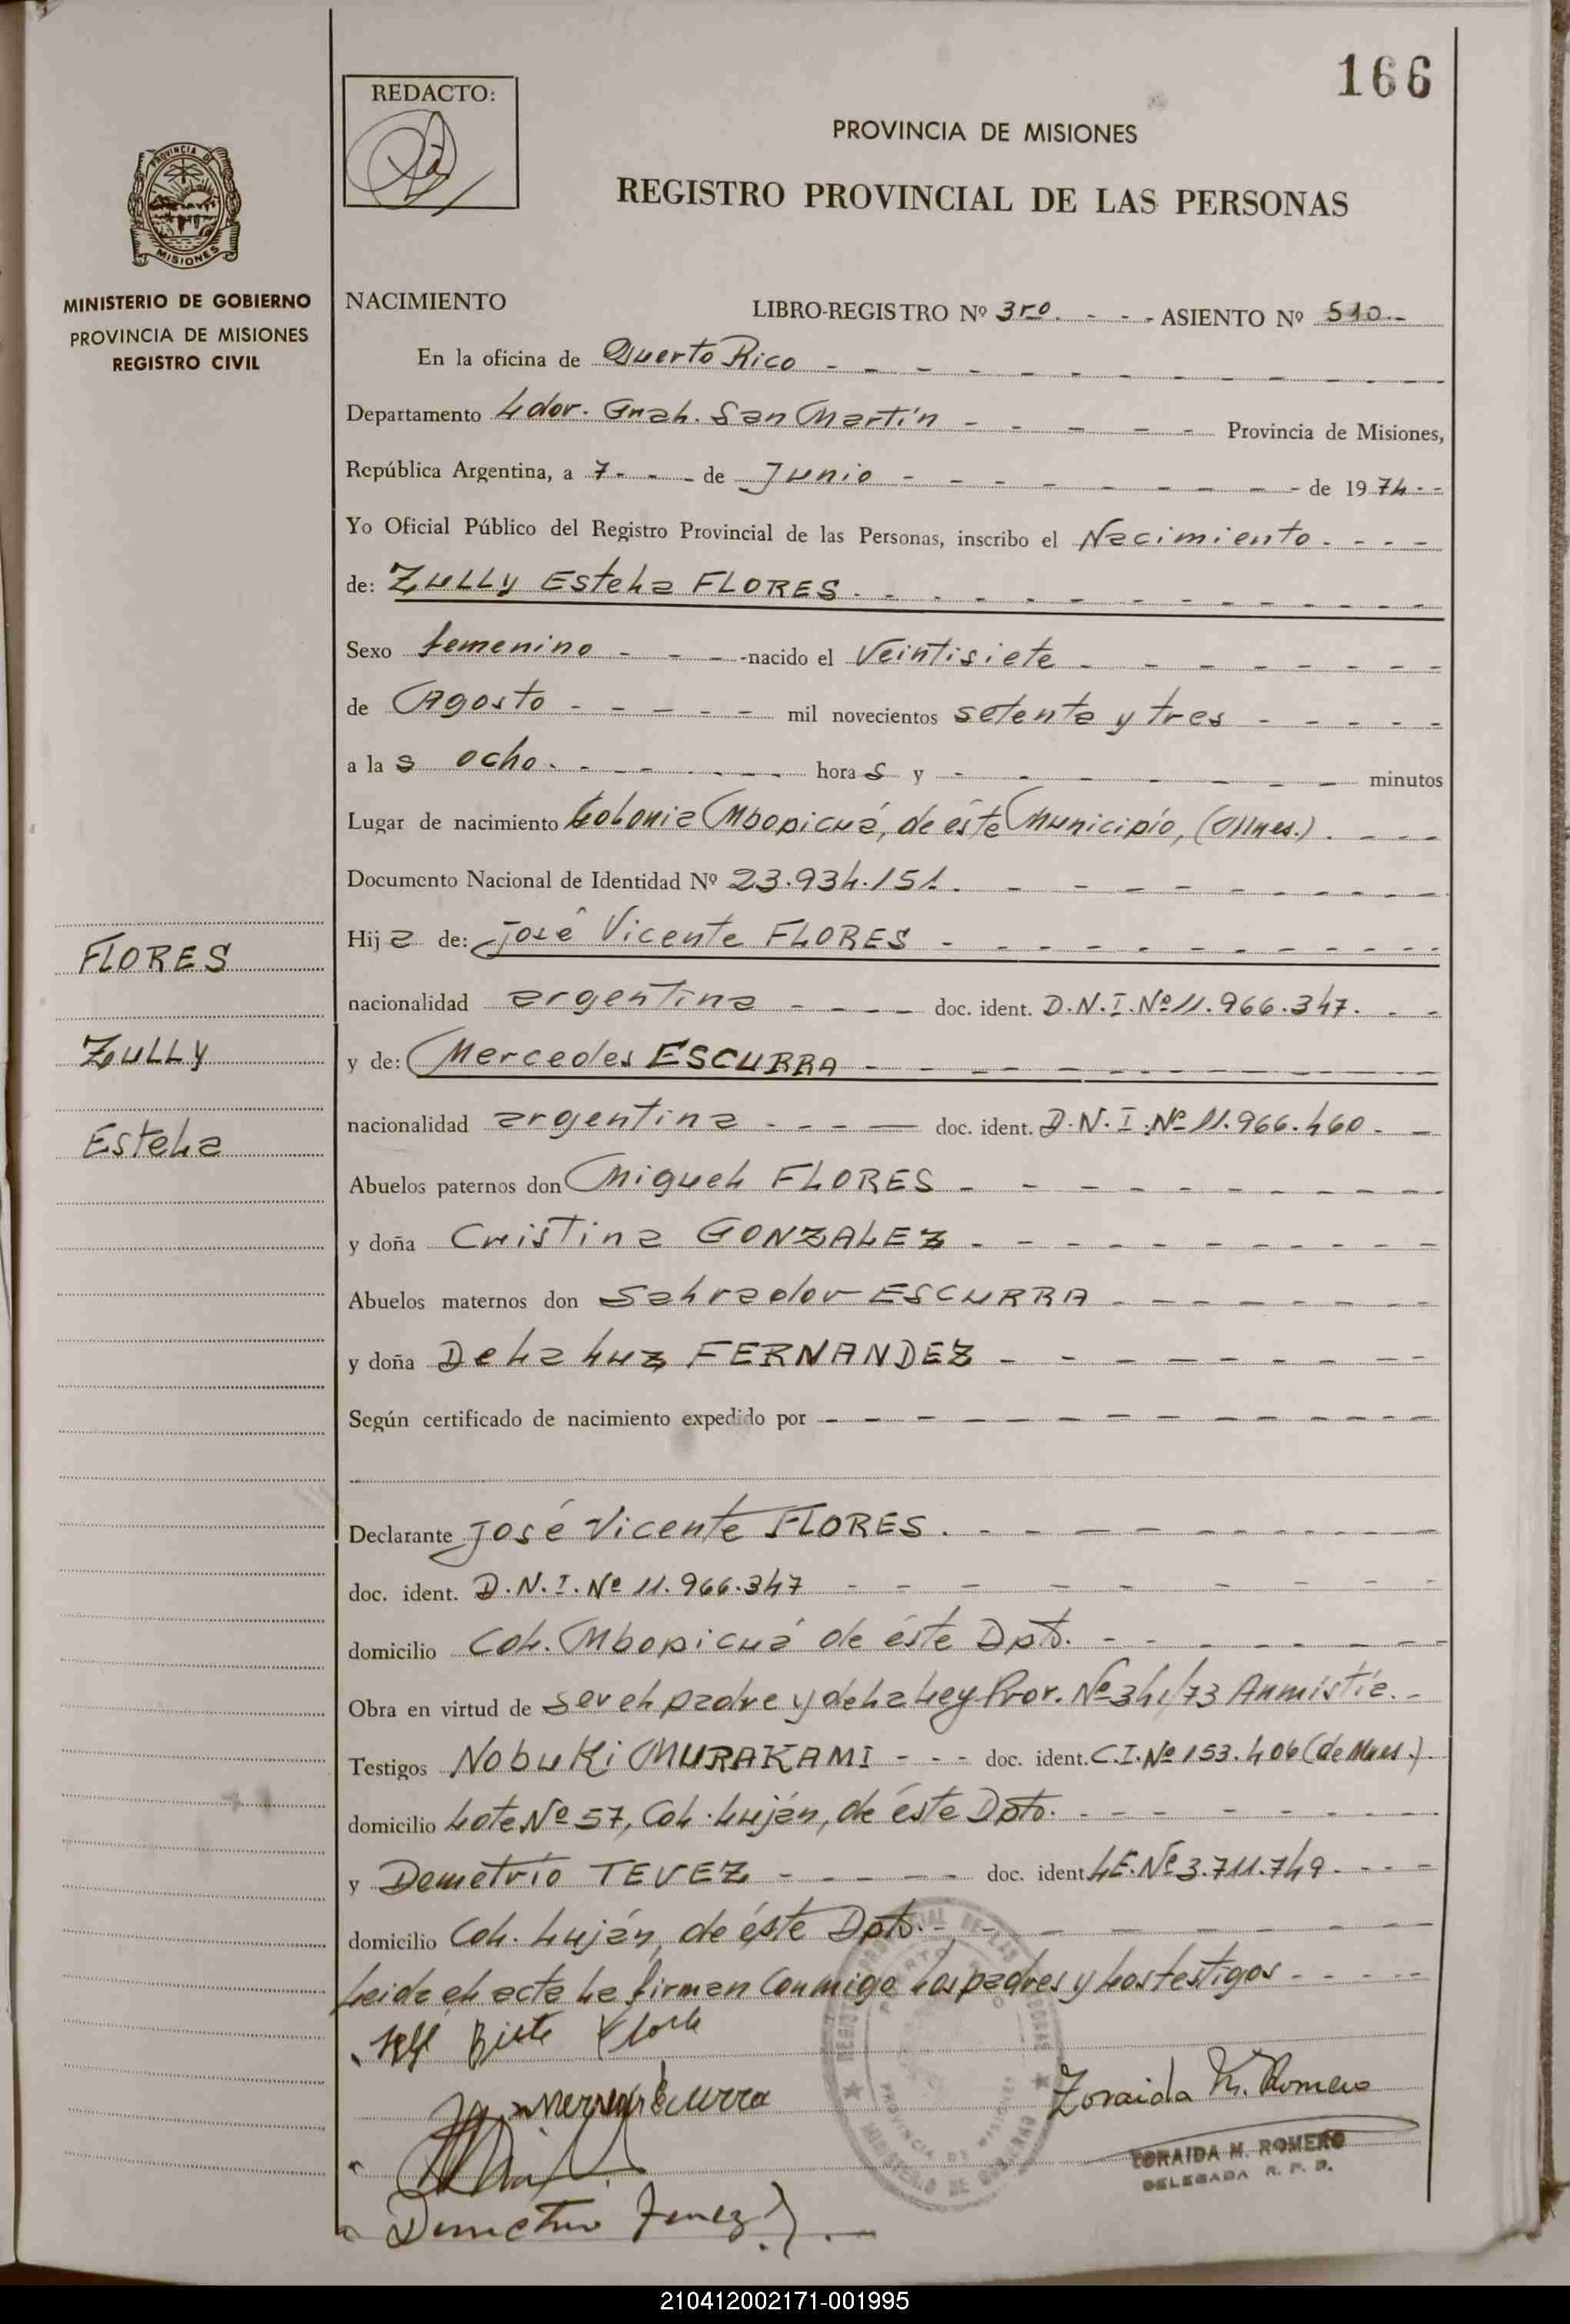 166
REDACTO:
PROVINCIA DE MISIONES
REGISTRO PROVINCIAL DE LAS PERSONAS
PROVINCIA DE
MISIONES
MINISTERIO DE GOBIERNO
PROVINCIA DE MISIONES
REGISTRO CIVIL
NACIMIENTO LIBRO-REGISTRO Nº 3ro. - - - ASIENTO Nº 510.-
En la oficina de Puerto Rico - - - - - - - - - - - -
Departamento Ldor. Gral. San Martín - - - - - Provincia de Misiones,
República Argentina, a 7- - - de Junio - - - - - - - - - de 1974 - -
Yo Oficial Público del Registro Provincial de las Personas, inscribo el Nacimiento. - - -
de: Zully Estela FLORES. - - - - - - - - - - - -
Sexo femenino - - - -nacido el Veintisiete - - - - - - -
de Agosto - - - - - mil novecientos setenta y tres - - - - -
a las ocho. - - - - - - horas y - - - - - - minutos
Lugar de nacimiento Colonia Mbopicuá, de éste Municipio, (Mnes.). - - -
Documento Nacional de Identidad Nº 23.934.151. - - - - - - - - -
FLORES
Zully
Estela
Hija de: José Vicente FLORES - - - - - - - - - - -
nacionalidad argentina - - - - doc. ident. D.N.I.Nº 11.966.347. - -
y de: Mercedes ESCURRA - - - - - - - - - - -
nacionalidad argentina - - - - doc. ident. D.N.I.Nº 11.966.460. - -
Abuelos paternos don Miguel FLORES - - - - - - - - - -
y doña Cristina GONZALEZ - - - - - - - - - - -
Abuelos maternos don Salvador ESCURRA - - - - - - - -
y doña De la Luz FERNANDEZ - - - - - - - - - -
Según certificado de nacimiento expedido por - - - - - - - - - - - - - -
Declarante José Vicente FLORES. - - - - - - - - - - -
doc. ident. D.N.I.Nº 11.966.347 - - - - - - - - -
domicilio Col. Mbopicuá de éste Dpto. - - - - - - - - -
Obra en virtud de ser el padre y de la Ley Prov. Nº 341/73 Anmistía. -
Testigos Nobuki MURAKAMI - - - doc. ident. C.I.Nº 153.406 (de Mnes.).
domicilio Lote Nº 57, Col. Luján, de éste Dpto. - - - - - - - -
y Demetrio TEVEZ - - - - - doc. ident. L.E.Nº 3.711.749. - - -
domicilio Col. Luján, de éste Dpto. - - - - - - - -
Leida el acta la firman conmigo los padres y los testigos - - - - -
Escurra
Zoraida M. Romero
ZORAIDA M. ROMERO
DELEGADA R. P. P.
PROVINCIA DE MISIONES
MINISTERIO DE GOBIERNO
Demetrio Tevez
210412002171-001995